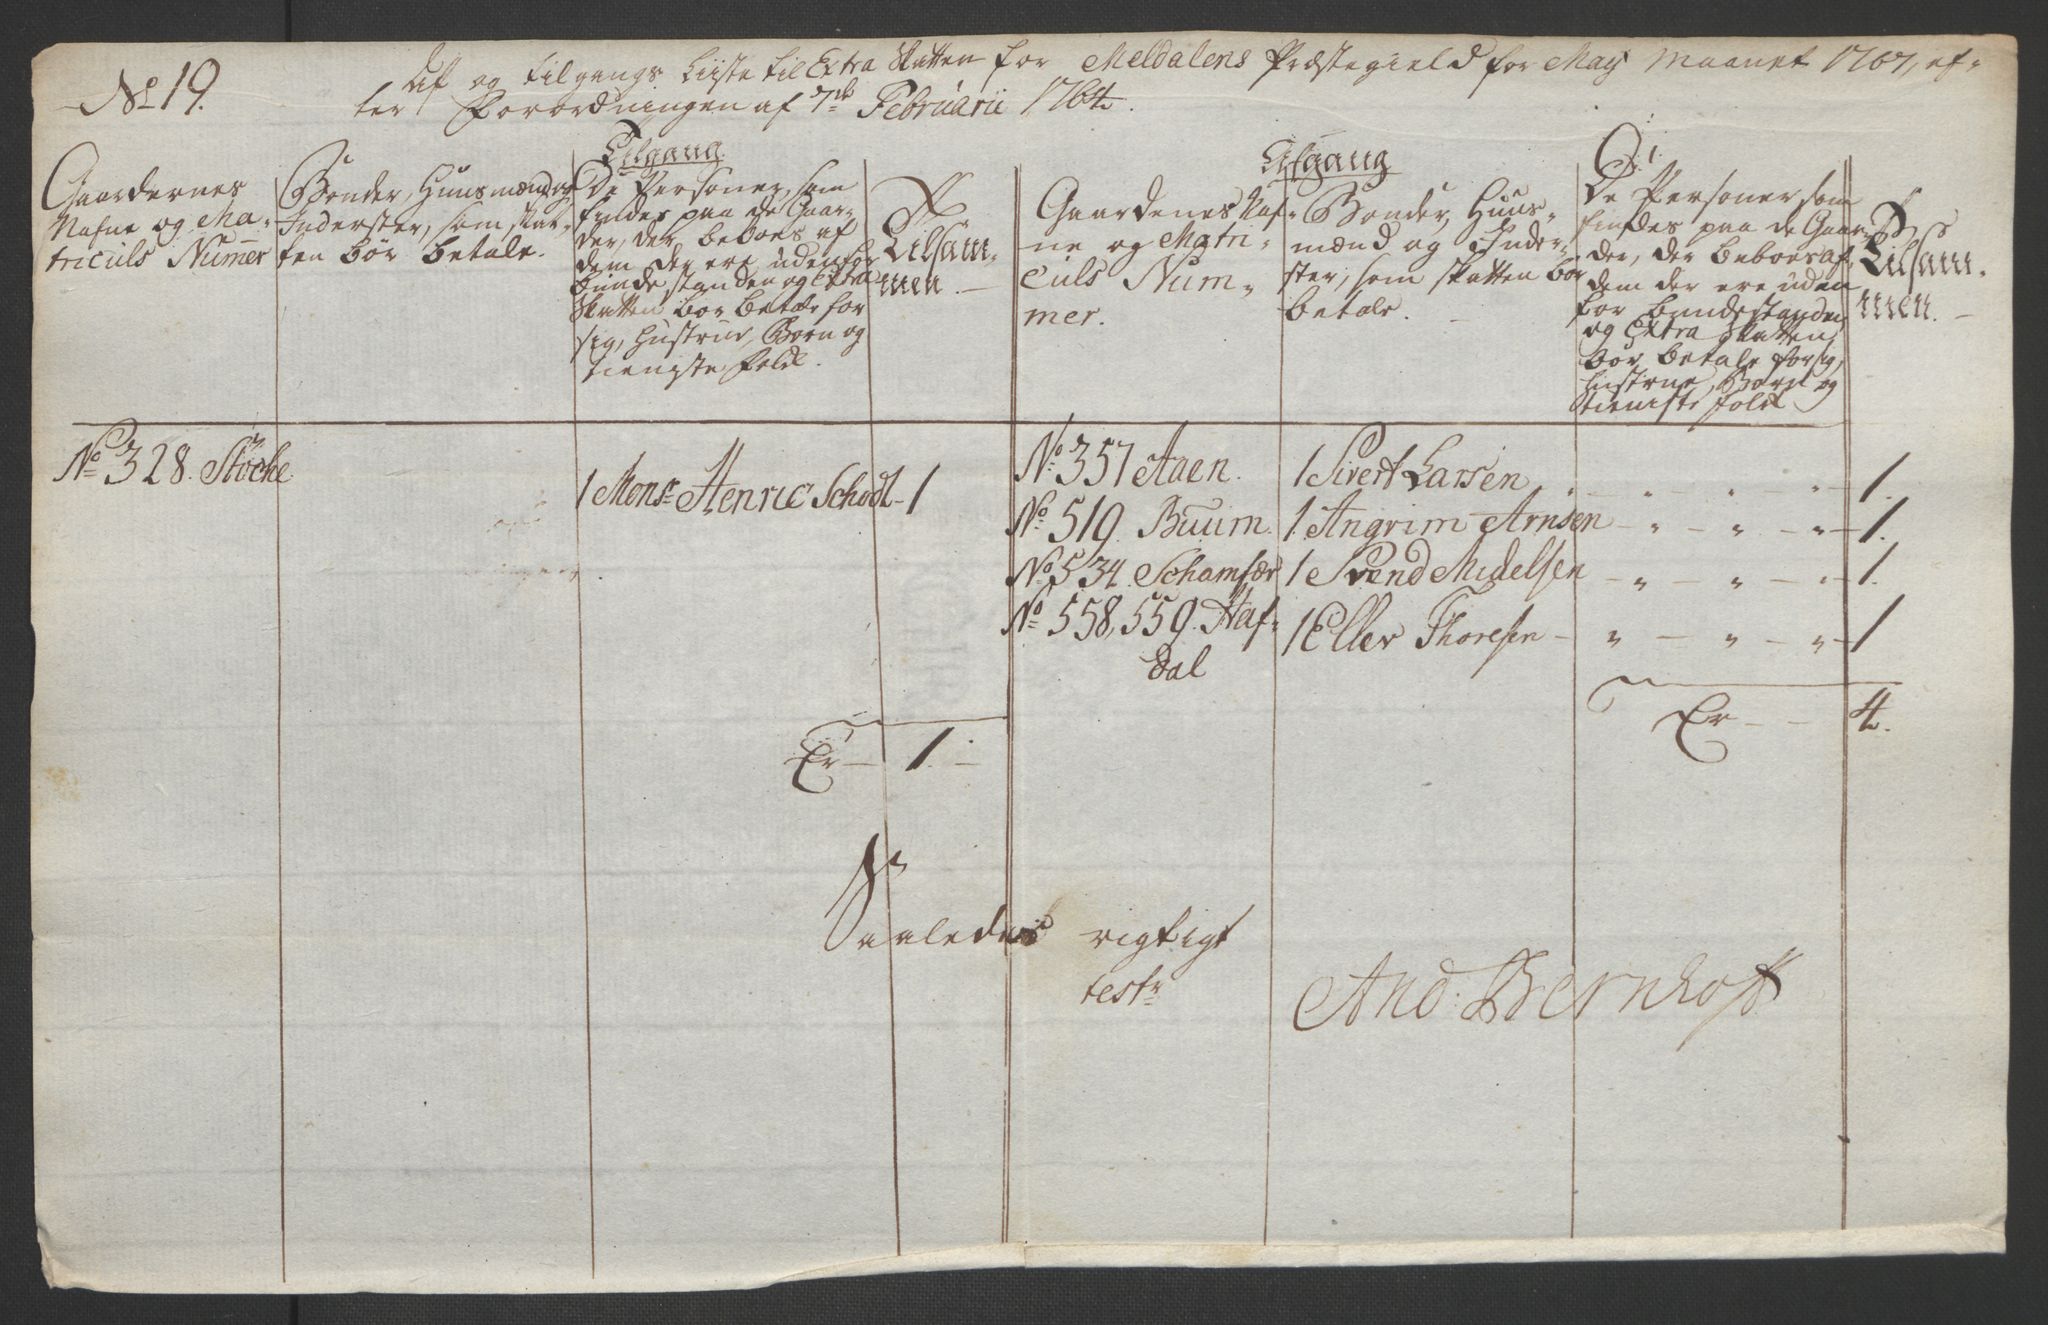 No 19.
Af og tilgangs Liiste til Extra Skatten for Meldalens Præstegield for May Maanet 1767, ef-
ter Forordningen af 7de Februarii 1764.
Tilgang
Gaardernes
Nafne og Ma-
triculs Numer
Bønder, Huusmænd og
Inderster, som skat-
ten bør betale.
De Personer, som
findes paa de Gaar-
der, der beboes af
dem der ere udenfor
bundestanden og Extra
Skatten bør betale for
sig, Hustrue, Børn og
tieniste Folk.
Tilsam-
men.
Afgang
Gaardenes Naf-
ne og Matri-
culs Num-
mer.
Bønder, Huus-
mænd og Inder-
ster, som skatten bør
betale.
De Personer som
findes paa de Gaar-
der, der beboes af
dem der ere uden
for bundestanden
og Extra Skatten
bør betale for sig,
Hustrue, Børn og
tieniste folk
Tilsam-
men.
No 328. Stöche 1 Monsr Henric Schodt - 1
No 357 Aaen. 1 Sivert Larsen " - " - " - 1.
No 519 Buum. 1. Angrim Arnsen - " - " - " - 1.
No 534 Schamfær 1 Svend Midelsen - " - " - " - 1.
No 558, 559. Haf-
dal
1 Eller Thoresen - " - " - " - 1
Er - 1. -
Er - - 4.
Saaledes rigtigt
testr
And: Bernhoft